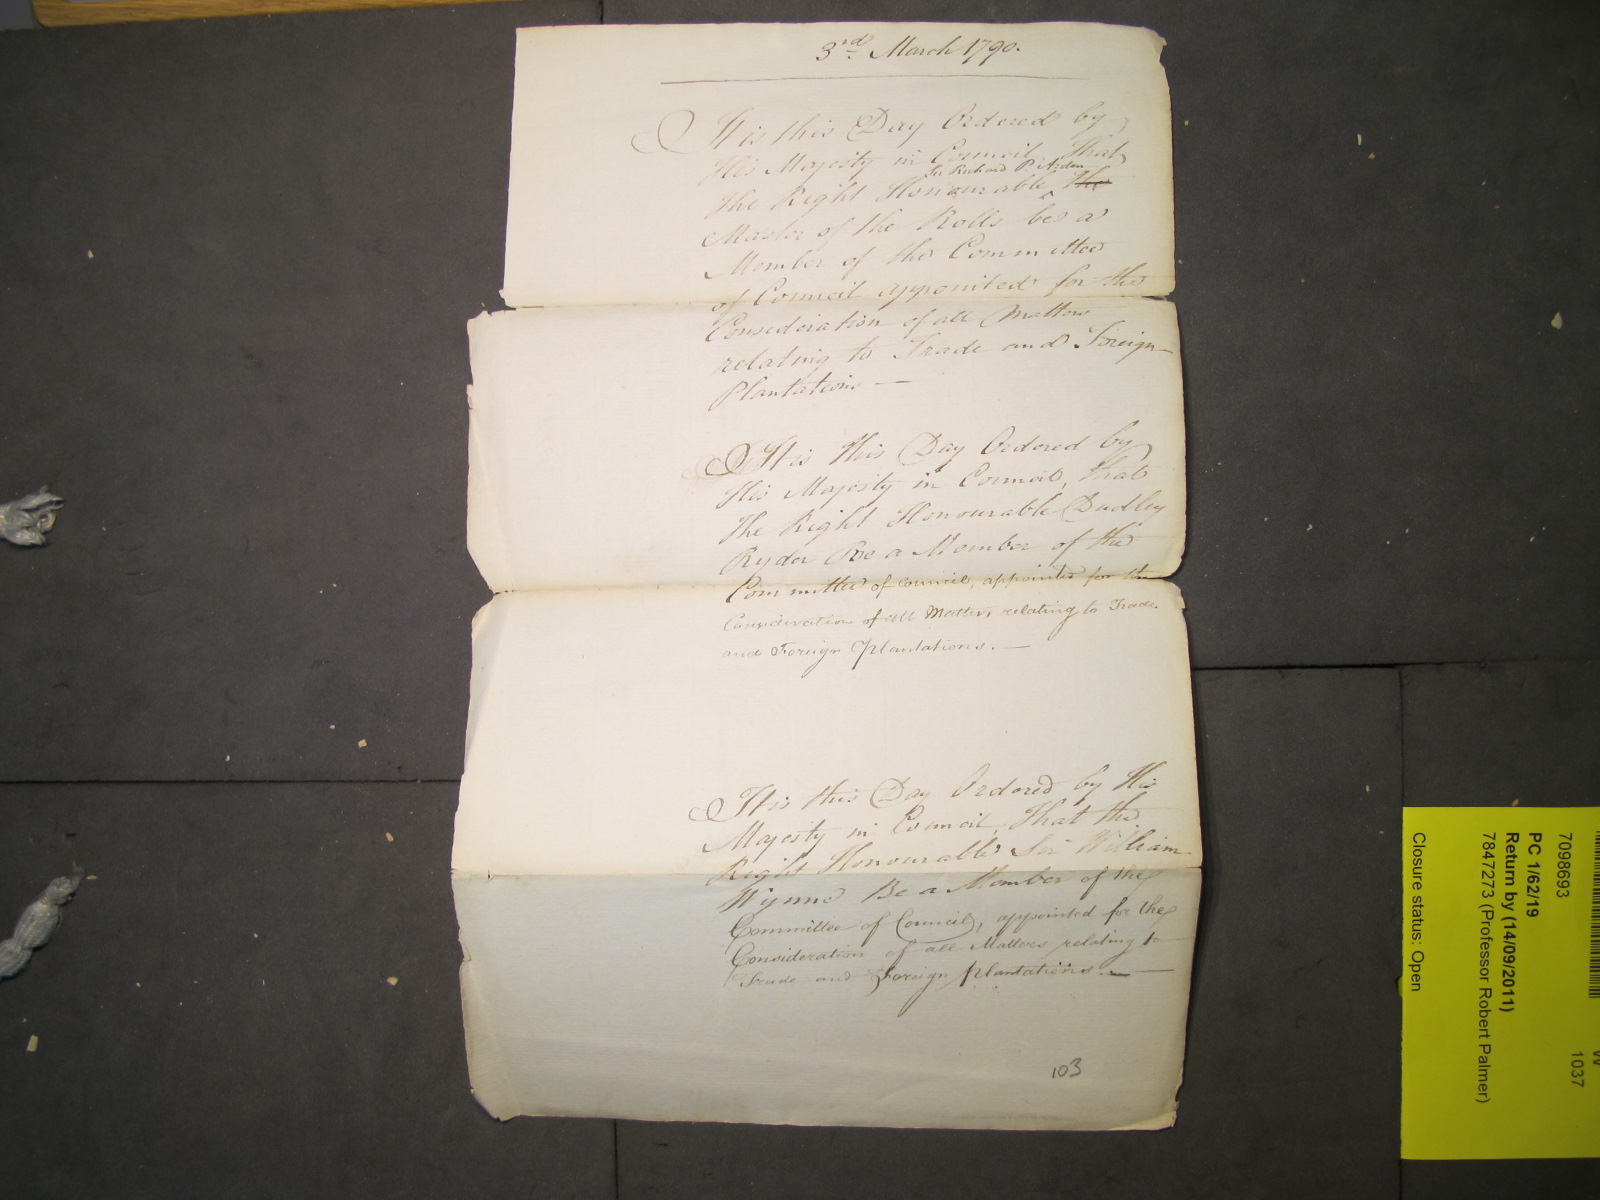 3rd March 1790.
It is this Day Ordered by
His Majesty in Council, that
Sir Richard P. Arden
The Right Honourable ^ the
Master of the Rolls be a
Member of the Committee
of Council appointed for the
Consideration of all Matters
relating to Trade and Foreign
Plantations —
It is this Day Ordered by
His Majesty in Council, that
The Right Honourable Dudley
Ryder Be a Member of the
Committee of Council, appointed for the
Consideration of all Matters relating to Trade
and Foreign Plantations. —
It is this Day Ordered by His
Majesty in Council, That the
Right Honourable Sir William
Wynne Be a Member of the
Committee of Council, appointed for the
Consideration of all Matters relating to
Trade and Foreign Plantations. —
103
7098693
W
1037
PC 1/62/19
Return by (14/09/2011)
7847273 (Professor Robert Palmer)
Closure status: Open